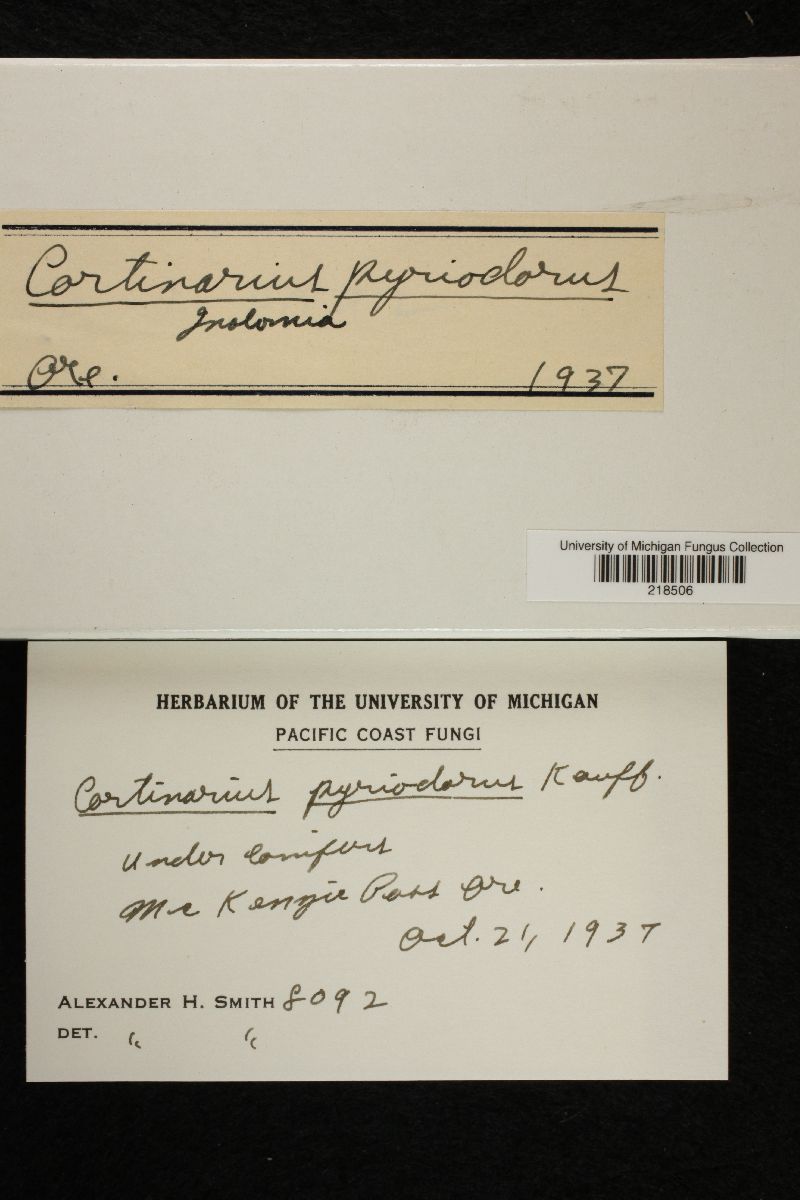 Cortinarius pyriodorus
Inoloma
Ore. 1937
University of Michigan Fungus Collection
218506
HERBARIUM OF THE UNIVERSITY OF MICHIGAN
PACIFIC COAST FUNGI
Cortinarius pyriodorus Kauff.
under conifers
McKenzie Pass Ore.
Oct. 21, 1937
ALEXANDER H. SMITH 8092
DET. " "